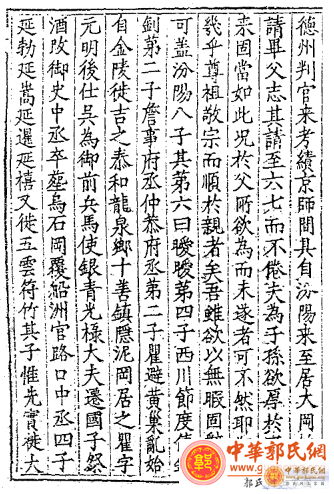 德州判官来考績京師間具自汾陽来至居大岡
請畢父志其請至六七而不倦夫為子孫欲厚於
来固當如此况於父所欲為而未遂者可不然耶
幾乎尊祖敬宗而順於親者矣吾雖欲以無暇固
可盖汾陽八子其第六曰曖曖第四子西川節度使
釗第二子詹事府丞仲恭府丞第二子瞿避黄巢亂始
自金陵徙吉之泰和龍泉鄉十善鎮隱泥岡居之瞿字
元明後仕吳為御前兵馬使銀青光禄大夫遷國子祭
酒改御史中丞卒塟烏石岡覆船洲官路口中丞四子
延勅延嵩延暹延禧又徙五雲符竹其子惟先實徙大
中華郭氏網